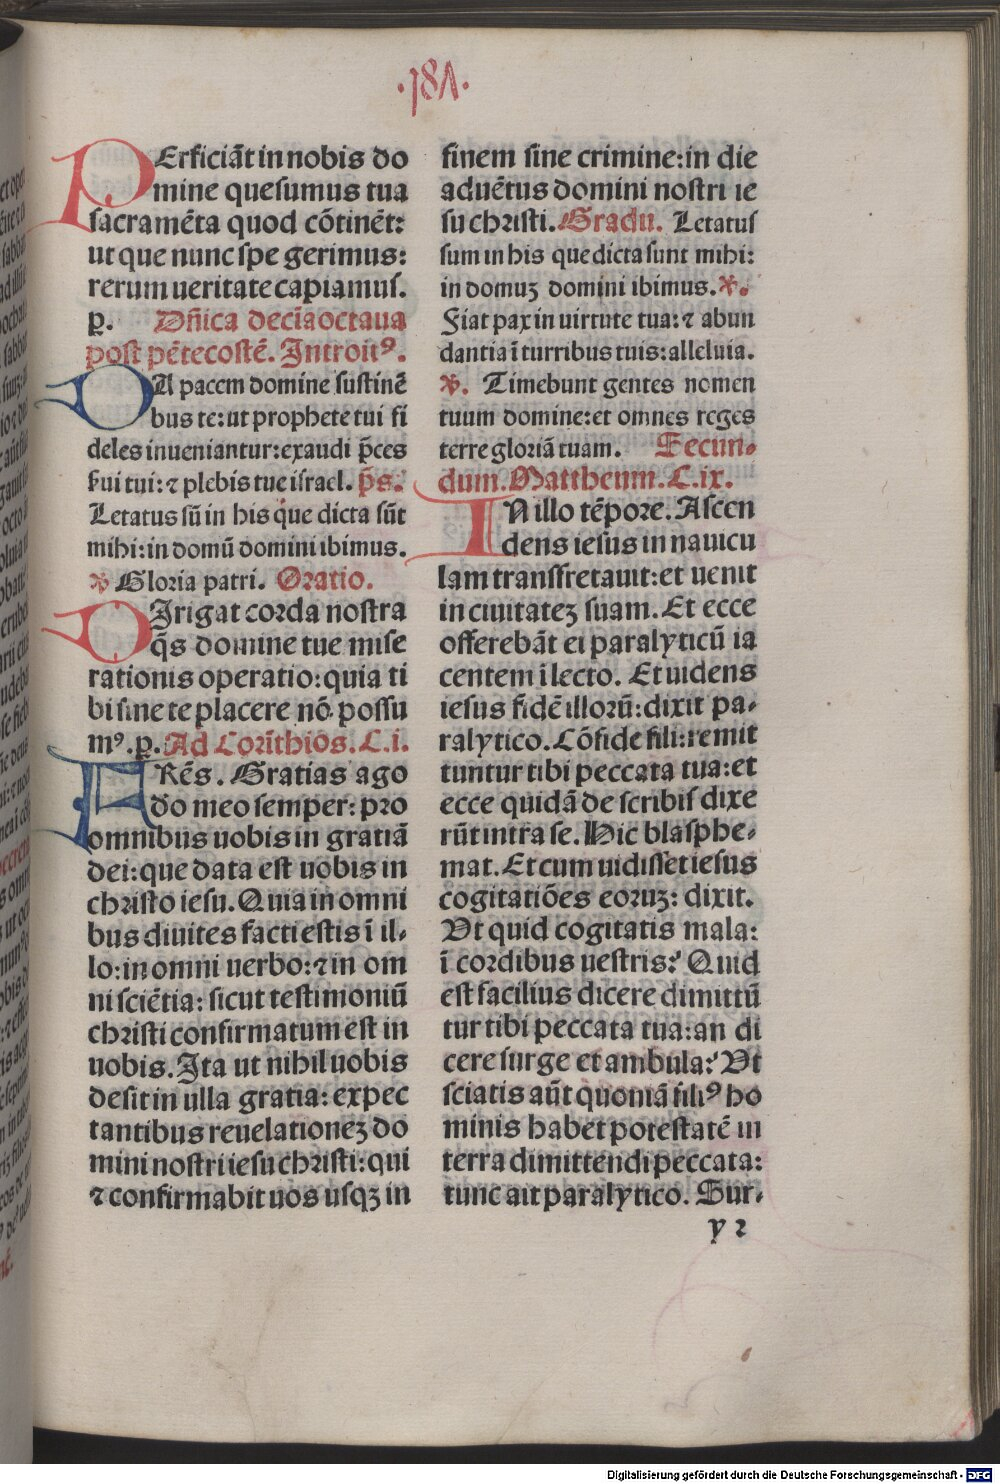 ·181·
PErficiāt in nobis do
mine quesumus tua
sacramēta quod cōtinēt:
ut que nunc spe gerimus:
rerum ueritate capiamus.
p̱. Dñica deciaoctaua
post pētecostē. Introitꝰ.
DA pacem domine sustinē
bus te: ut prophete tui fi
deles inueniantur: exaudi p̄ces
sui tui: ⁊ plebis tue israel. p̄s.
Letatus sū in his q̄ue dicta sūt
mihi: in domū domini ibimus.
℣ Gloria patri. Oratio.
DIrigat corda nostra
q̄s domine tue mise
rationis operatio: quia ti
bi sine te placere nō possu
mꝰ. p̱. Ad Corīthios. C. i.
FRēs. Gratias ago
do meo semper: pro
omnibus uobis in gratiā
dei: que data est uobis in
christo iesu. Quia in omni
bus diuites facti estis ī il-
lo: in omni uerbo: ⁊ in om
ni sciētia: sicut testimoniū
christi confirmatum est in
uobis. Ita ut nihil uobis
desit in ulla gratia: expec
tantibus reuelationeꝫ do
mini nostri iesu christi: qui
⁊ confirmabit uos usqꝫ in
finem sine crimine: in die
aduētus domini nostri ie
su christi. Gradu. Letatus
sum in his que dicta sunt mihi:
in domuꝫ domini ibimus. ℣.
Fiat pax in uirtute tua: ⁊ abun
dantia ī turribus tuis: alleluia.
℣. Timebunt gentes nomen
tuum domine: et omnes reges
terre gloriā tuam. Secun-
dum. Mattheum. C. ix.
IN illo tēpore. Ascen
dens iesus in nauicu
lam transfretauit: et uenit
in ciuitateꝫ suam. Et ecce
offerebāt ei paralyticū ia
centem ī lecto. Et uidens
iesus fidē illorū: dixit pa-
ralytico. Cōfide fili: remit
tuntur tibi peccata tua: et
ecce quidā de scribis dixe
rūt intra se. Hic blasphe-
mat. Et cum uidisset iesus
cogitatiōes eoruꝫ: dixit.
Ut quid cogitatis mala:
ī cordibus uestris? Quid
est facilius dicere dimittū
tur tibi peccata tua: an di
cere surge et ambula? Ut
sciatis aūt quoniā filiꝰ ho
minis habet potestatē in
terra dimittendi peccata:
tunc ait paralytico. Sur-
y 2
Digitalisierung gefördert durch die Deutsche Forschungsgemeinschaft - DFG